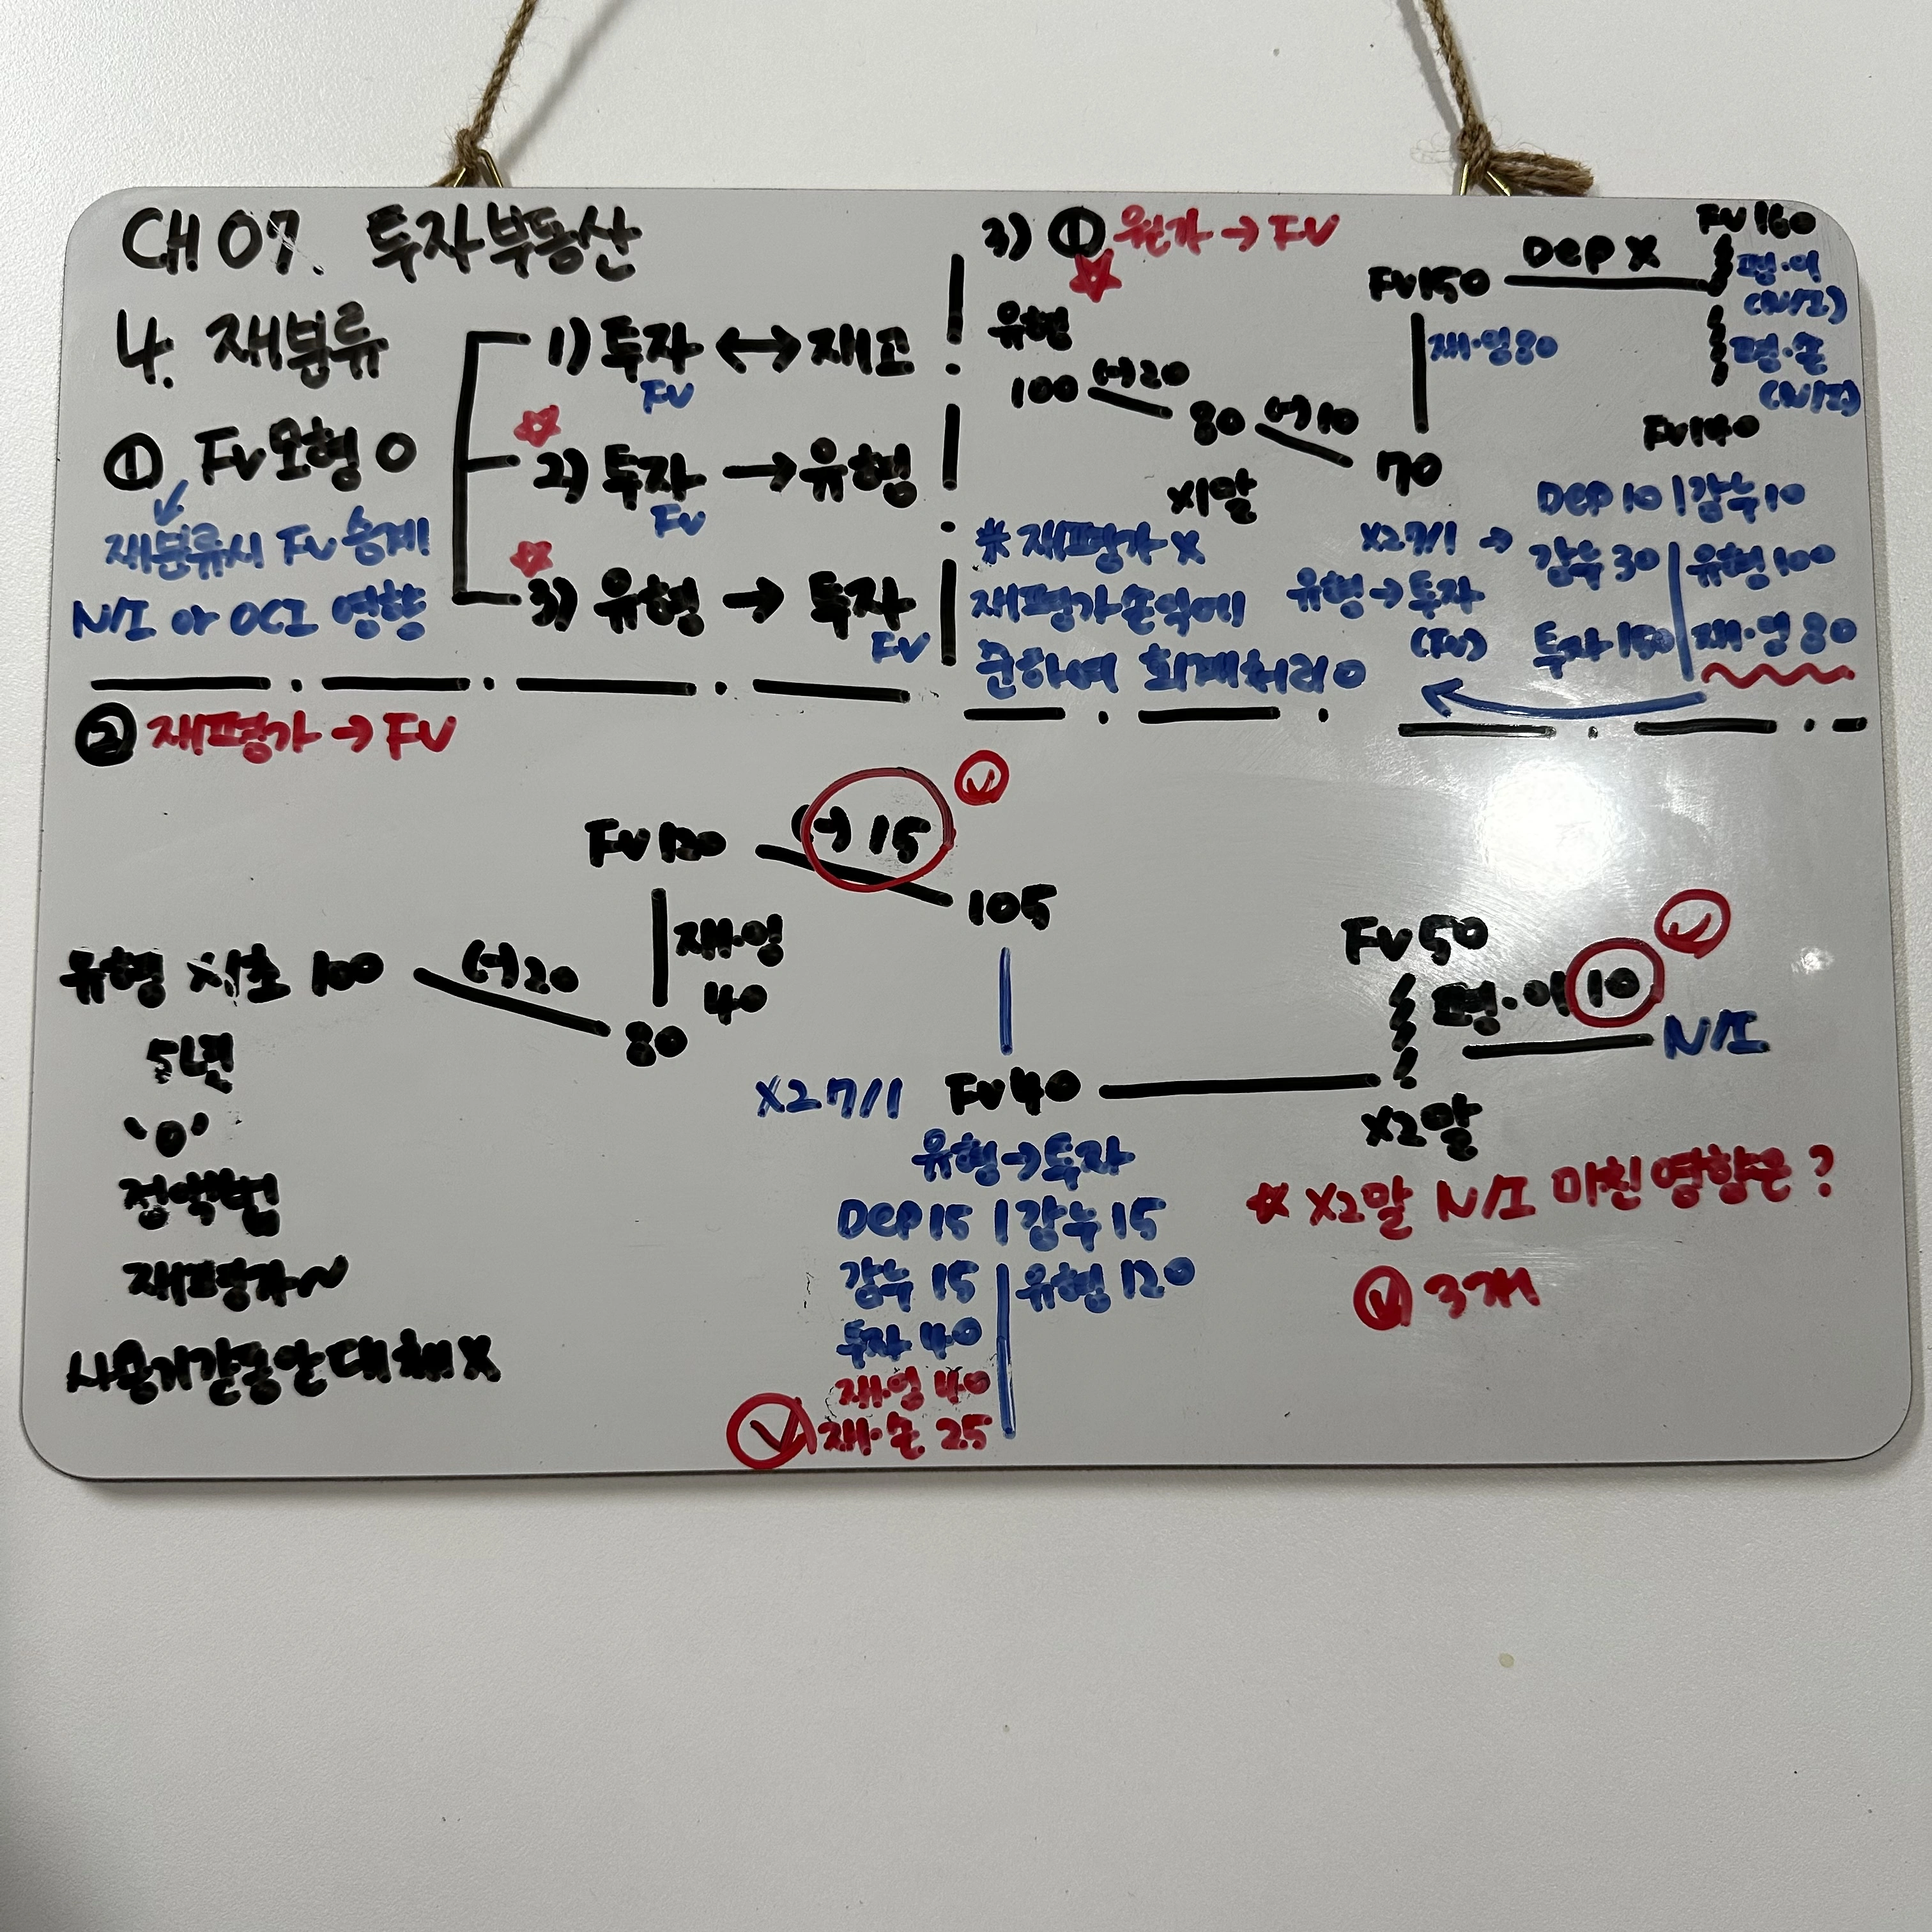 CH 07. 투자부동산
4. 재분류
① FV모형 O
재분류시 FV 승계!
N/I or OCI 영향
1) 투자 ↔ 재고
FV
2) 투자 → 유형
FV
3) 유형 → 투자
FV
3) ① 원가 → FV
유형
100 (-)20
80 (-)10
X1말
70
FV150
재·잉80
Dep X
FV160
평·이
(N/I)
평·손
(N/I)
FV140
※ 재평가 X
재평가손익에
준하여 회계처리 O
X2 7/1 →
유형→투자
(FV)
Dep 10 | 감누 10
감누 30 | 유형 100
투자 150 | 재·잉 80
② 재평가 → FV
유형 X1초 100
5년
'0'
정액법
재평가~
사용기간동안대체X
(-)20
80
FV120
재·잉
40
(-)15
105
X2 7/1 FV40
유형→투자
Dep15 | 감누 15
감누 15 | 유형 120
투자 40
재·잉 40
재·손 25
FV50
평·이 10
N/I
X2말
☆ X2말 N/I 미친영향은?
3개